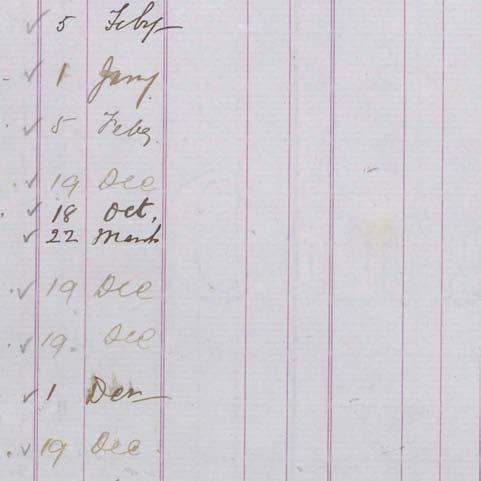 ✓ 5 Feby
✓ 1 Jany
✓ 5 Feby
✓ 19 Dec
✓ 18 Oct,
✓ 22 March
✓ 19 Dec
✓ 19 Dec
✓ 1 Decr
✓ 19 Dec